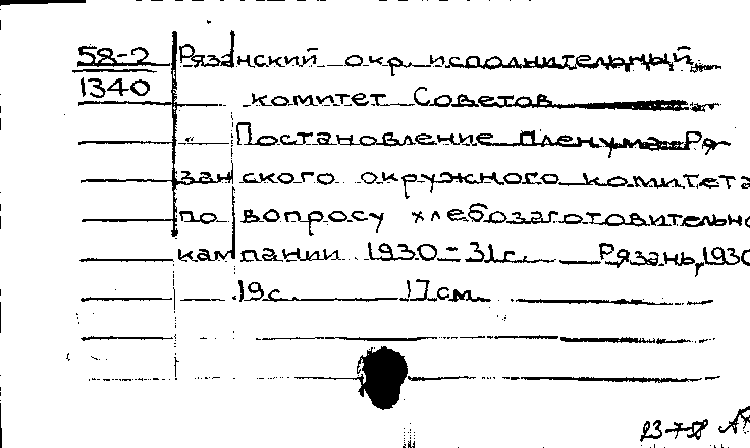 58-2 Рязанский окр. исполнительный
1340 комитет Советов
Постановление пленума Ря-
занского окружного комитета
по вопросу хлебозаготовительно
кампании 1930-31г. Рязань, 1930
19с. 17см.